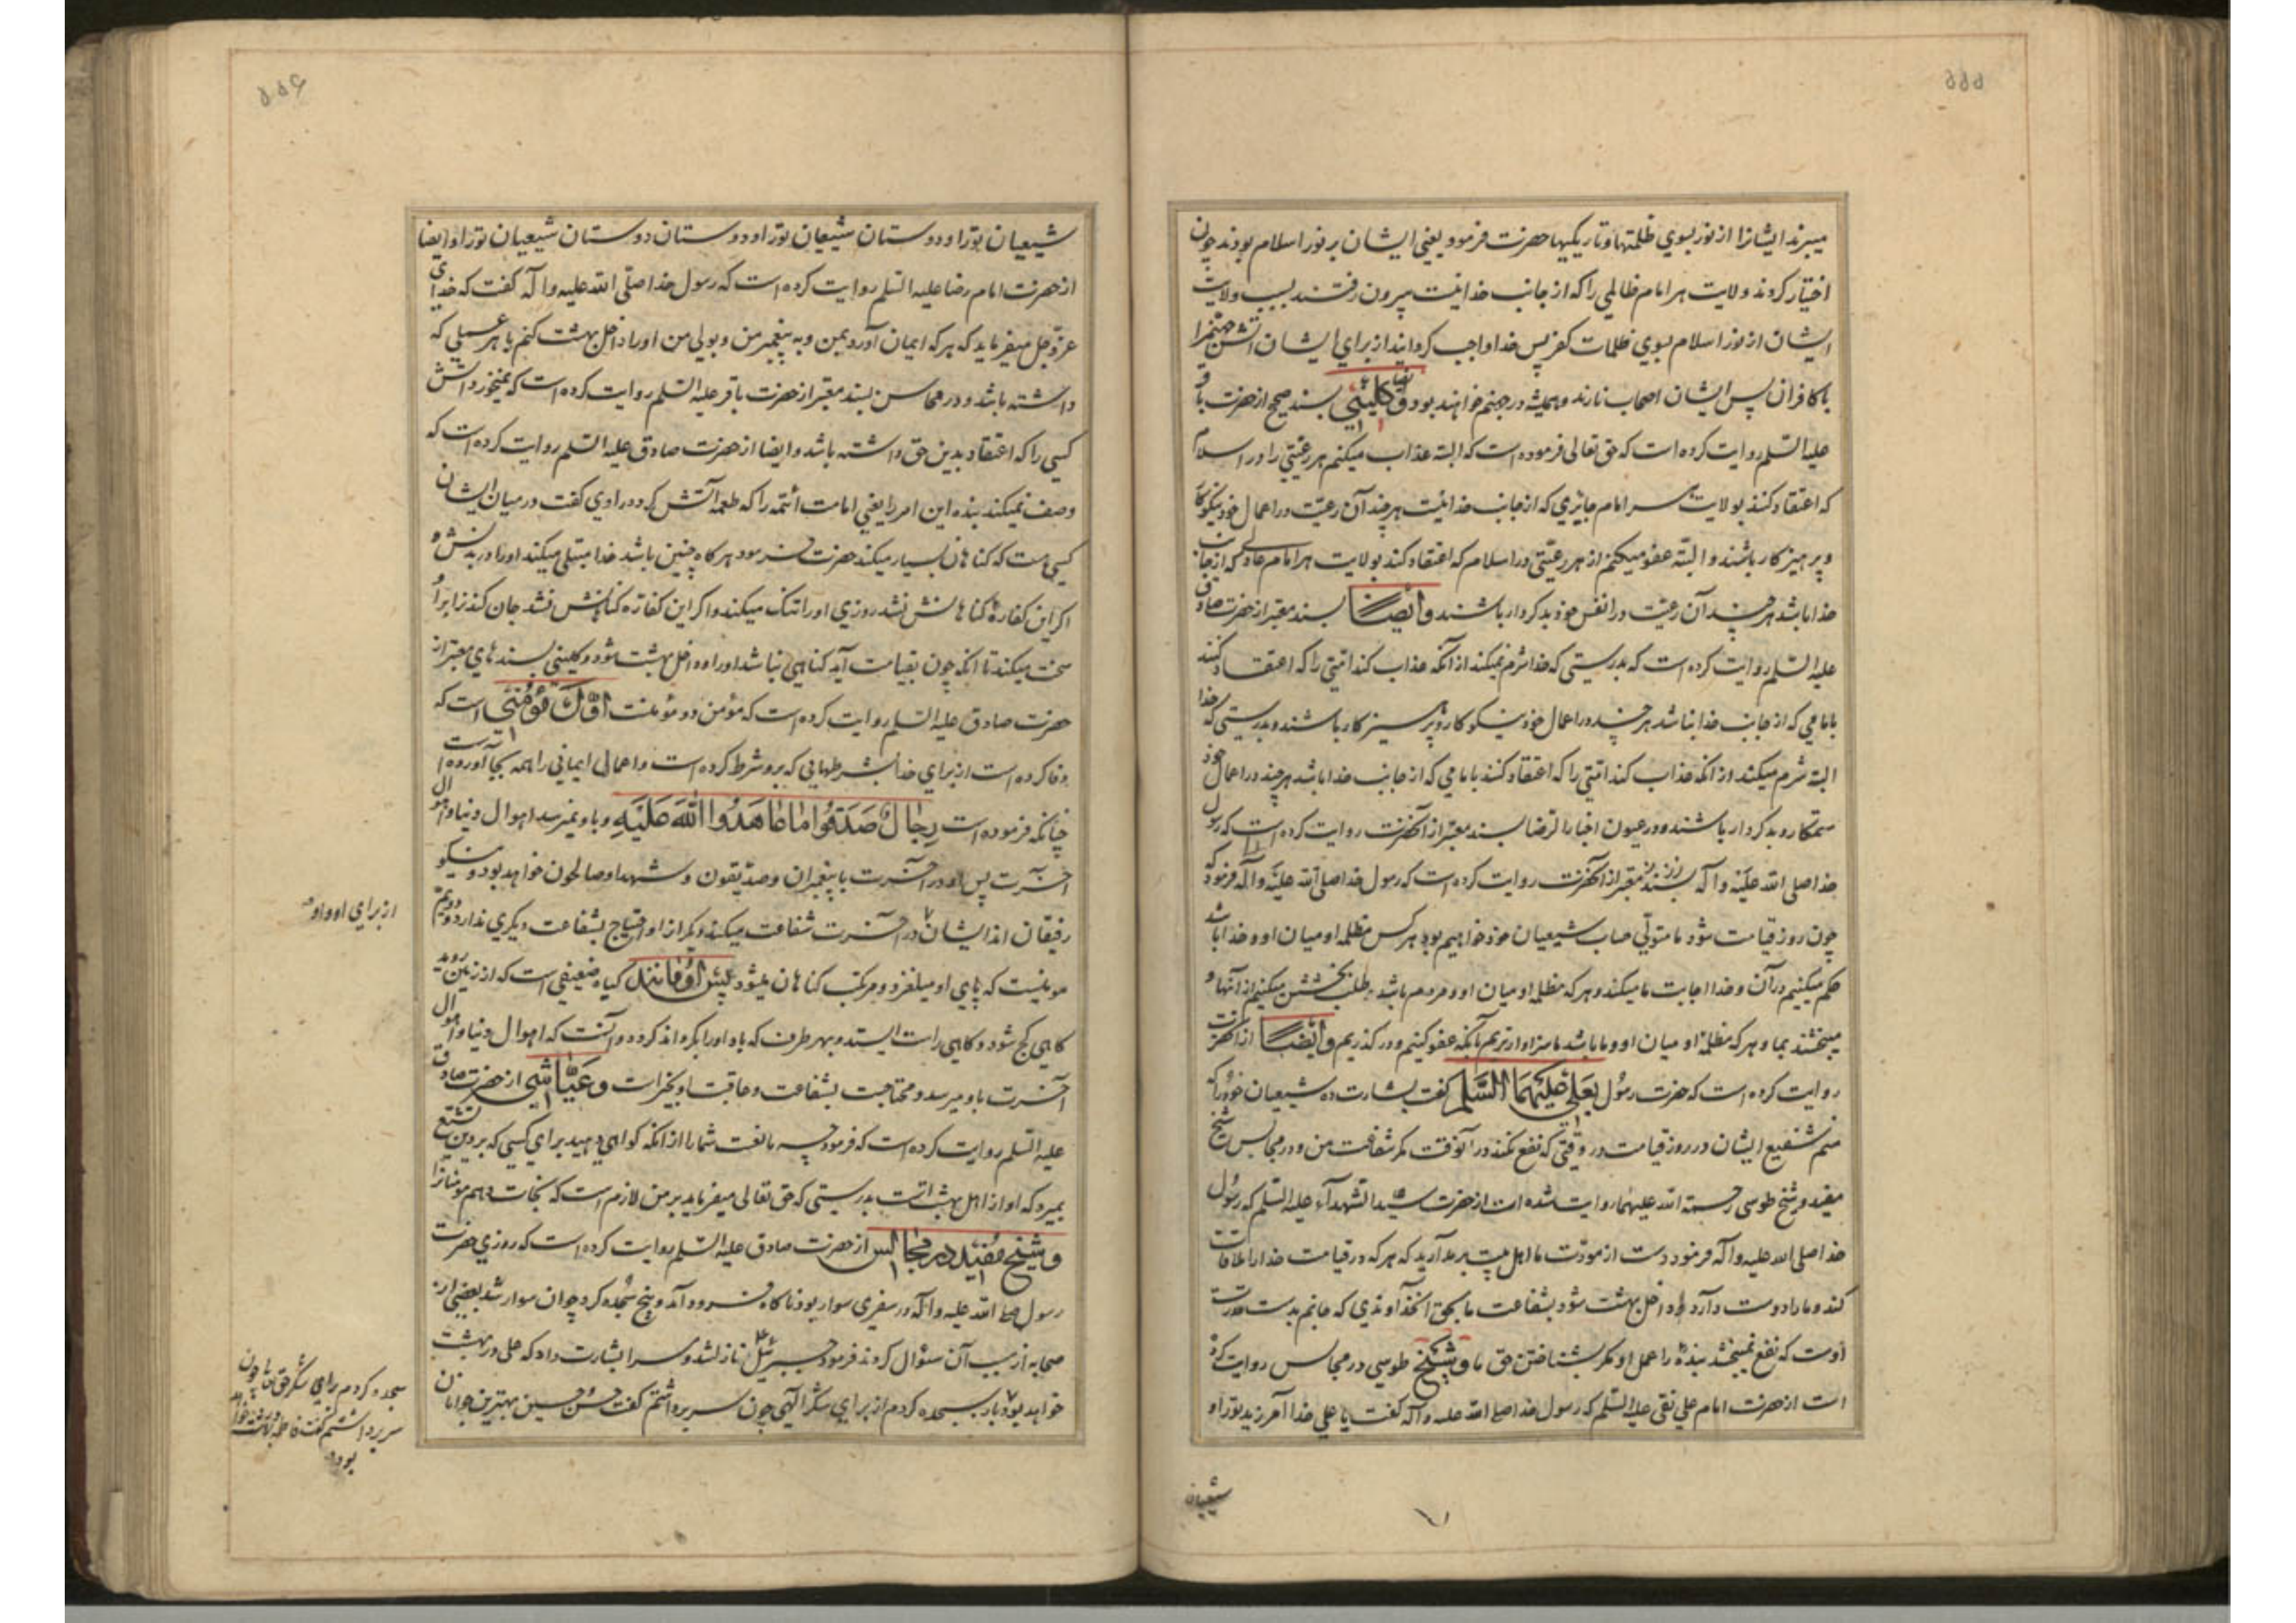 ۵۵۵
میبرند ایشانرا از نور بسوی ظلمتها و تاریکیها حضرت فرمود یعنی ایشان بر نور اسلام بودند چون
اختیار کردند ولایت هر امام ظالمی را که از جانب خدا نیست بیرون رفتند بسبب ولایت
ایشان از نور اسلام بسوی ظلمات کفر پس خدا واجب گردانید از برای ایشان آتش جهنم را
با کافران پس ایشان اصحاب نارند و همیشه در جهنم خواهند بود و کلینی بسند صحیح از حضرت باقر
علیه السلم روایت کرده است که حق تعالی فرموده است که البته عذاب میکنم هر رعیتی را در اسلام
که اعتقاد کنند بولایت هر امام جایری که از جانب خدا نیست هر چند آن رعیت در اعمال خود نیکوکار
و پرهیز کار باشند و البته عفو میکنم از هر رعیتی در اسلام که اعتقاد کند بولایت هر امام عادلی که از جانب
خدا باشد هر چند آن رعیت در انفس خود بد کردار باشند و ایضا بسند معتبر از حضرت صادق
علیه السلم روایت کرده است که بدرستی که خدا شرم نمیکند از آنکه عذاب کند امتی را که اعتقاد کنند
بامامی که از جانب خدا نباشد هر چند در اعمال خود نیکو کار و پرهیز کار باشند و بدرستی که خدا
البته شرم میکند از انکه عذاب کند امتی را که اعتقاد کنند بامامی که از جانب خدا باشد هر چند در اعمال خود
ستمکار و بد کردار باشند و در عیون اخبار الرضا بسند معتبر از آنحضرت روایت کرده است که رسول
خدا صلی الله علیه و آله بسند معتبر از آنحضرت روایت کرده است که رسول خدا صلی الله علیه و آله فرمود که
چون روز قیامت شود ما متولی حساب شیعیان خود خواهیم بود هر کس مظلمه او میان او و خدا باشد
حکم میکنیم در آن و خدا اجابت ما میکند و هر که مظلمه او میان او و مردم باشد طلب بخشش میکنیم از آنها و
میبخشند بما و هر که مظلمه او میان او و ما باشد ما سزاوارتریم بآنکه عفو کنیم و در گذریم و ایضا از آنحضرت
روایت کرده است که حضرت رسول بعلی علیهما السلم گفت بشارت ده شیعیان خود را که
منم شفیع ایشان در روز قیامت در وقتی که نفع نکند در آنوقت مگر شفاعت من و در مجالس شیخ
مفید و شیخ طوسی رحمة الله علیهما روایت شده است از حضرت سید الشهدآء علیه السلم که رسول
خدا صلی الله علیه و آله فرمود دست از مودت ما اهل بیت بر مدارید که هر که در قیامت خدا را ملاقات
کند و ما را دوست دارد داخل بهشت شود بشفاعت ما بحق آنخداوندی که جانم بدست قدرت
اوست که نفع نمیبخشد بنده را عمل او مگر بشناختن حق ما و شیخ طوسی در مجالس روایت کرده
است از حضرت امام علی نقی علیه السلم که رسول خدا صلی الله علیه و آله گفت یا علی خدا آمرزید تو را و
شیعیان
۵۵۶
شیعیان تو را و دوستان شیعیان تو را و دوستان دوستان شیعیان تو را و ایضا
از حضرت امام رضا علیه السلم روایت کرده است که رسول خدا صلی الله علیه و آله گفت که خدای
عز و جل میفرماید که هر که ایمان آورد بمن و به پیغمبر من و بولی من او را داخل بهشت کنم با هر عملی که
داشته باشد و در محاسن بسند معتبر از حضرت باقر علیه السلم روایت کرده است که نمیخورد آتش
کسی را که اعتقاد بدین حق داشته باشد و ایضا از حضرت صادق علیه السلم روایت کرده است که
وصف نمیکند بنده این امر را یعنی امامت ائمه را که طعمه آتش گردد راوی گفت در میان ایشان
کسی هست که گناهان بسیار میکند حضرت فرمود هر گاه چنین باشد خدا مبتلی میکند او را در بدنش و
اگر این کفاره گناهانش نشد روزی او را تنگ میکند و اگر این کفاره گناهانش نشد جان کندن را بر او
سخت میکند تا انکه چون بقیامت آید گناهی نباشد او را و داخل بهشت شود و کلینی بسند های معتبر از
حضرت صادق علیه السلم روایت کرده است که مؤمن دو مؤمنست اول مؤمنی است که
وفا کرده است از برای خدا بشرطهایی که برو شرط کرده است و اعمال ایمانی را همه بجا آورده است
چنانکه فرموده است رجال صدقوا ما عاهدوا الله علیه و باو نمیرسد اهوال دنیا و اهوال
آخرت پس او در آخرت با پیغمبران و صدیقون و شهدا و صالحون خواهد بود و نیکو
رفیقان اند ایشان در آخرت شفاعت میکند دیگران او احتیاج بشفاعت دیگری ندارد و دویم
از برای او و او
مومنیست که پای او میلغزد و مرتکب گناهان میشود پس او مانند گیاه ضعیفی است که از زمین روید
گاهی کج شود و گاهی راست ایستد و بهر طرف که باد او را بگرداند گردد و آنست که اهوال دنیا و اهوال
آخرت باو میرسد و محتاجست بشفاعت و عاقبت او بخیر است و عیاشی از حضرت صادق
علیه السلم روایت کرده است که فرمود چه مانعست شما را از انکه گواهی دهید برای کسی که بر دین تشیع
بمیرد که او از اهل بهشت است بدرستی که حق تعالی میفرماید بر من لازم است که نجات دهم مومنانرا
و شیخ مفید در مجالس از حضرت صادق علیه السلم روایت کرده است که روزی حضرت
رسول صلی الله علیه و آله در سفری سوار بود ناگاه فرود آمد و پنج سجده کرد چون سوار شد بعضی از
صحابه از سبب آن سؤال کردند فرمود جبرئیل نازل شد و مرا بشارت داد که علی در بهشت
خواهد بود پس سجده کردم از برای شکر الهی چون سر برداشتم گفت حسن و حسین بهترین جوانان
سجده کردم برای شکر حق تعالی چون
سر برداشتم گفت فاطمه در بهشت خواهد
بود